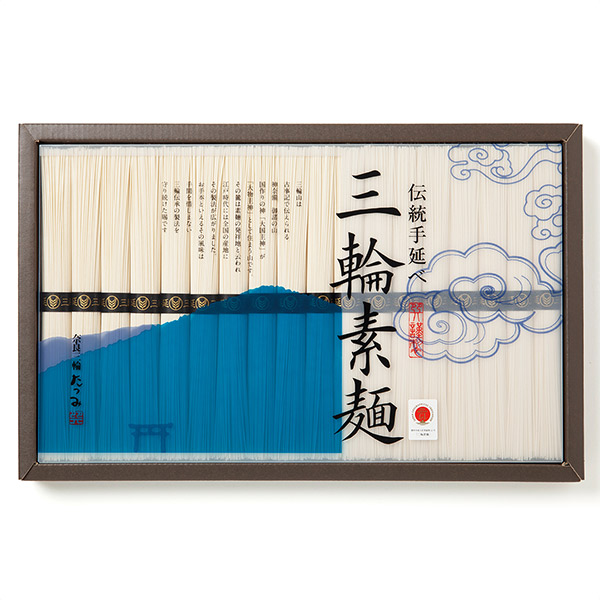 伝統手延べ
三輪素麺
三輪山は
古事記で伝えられる
神奈備―御諸の山
国作りの神「大国主神」が
「大物主神」として住まう山です
その麓は素麺の発祥地と云われ
江戸時代には全国の産地に
その製法が広がりました。
お手本といえるその風味は
手間を惜しまない
三輪伝承の製法を
守り続けた賜です
奈良三輪
たつみ